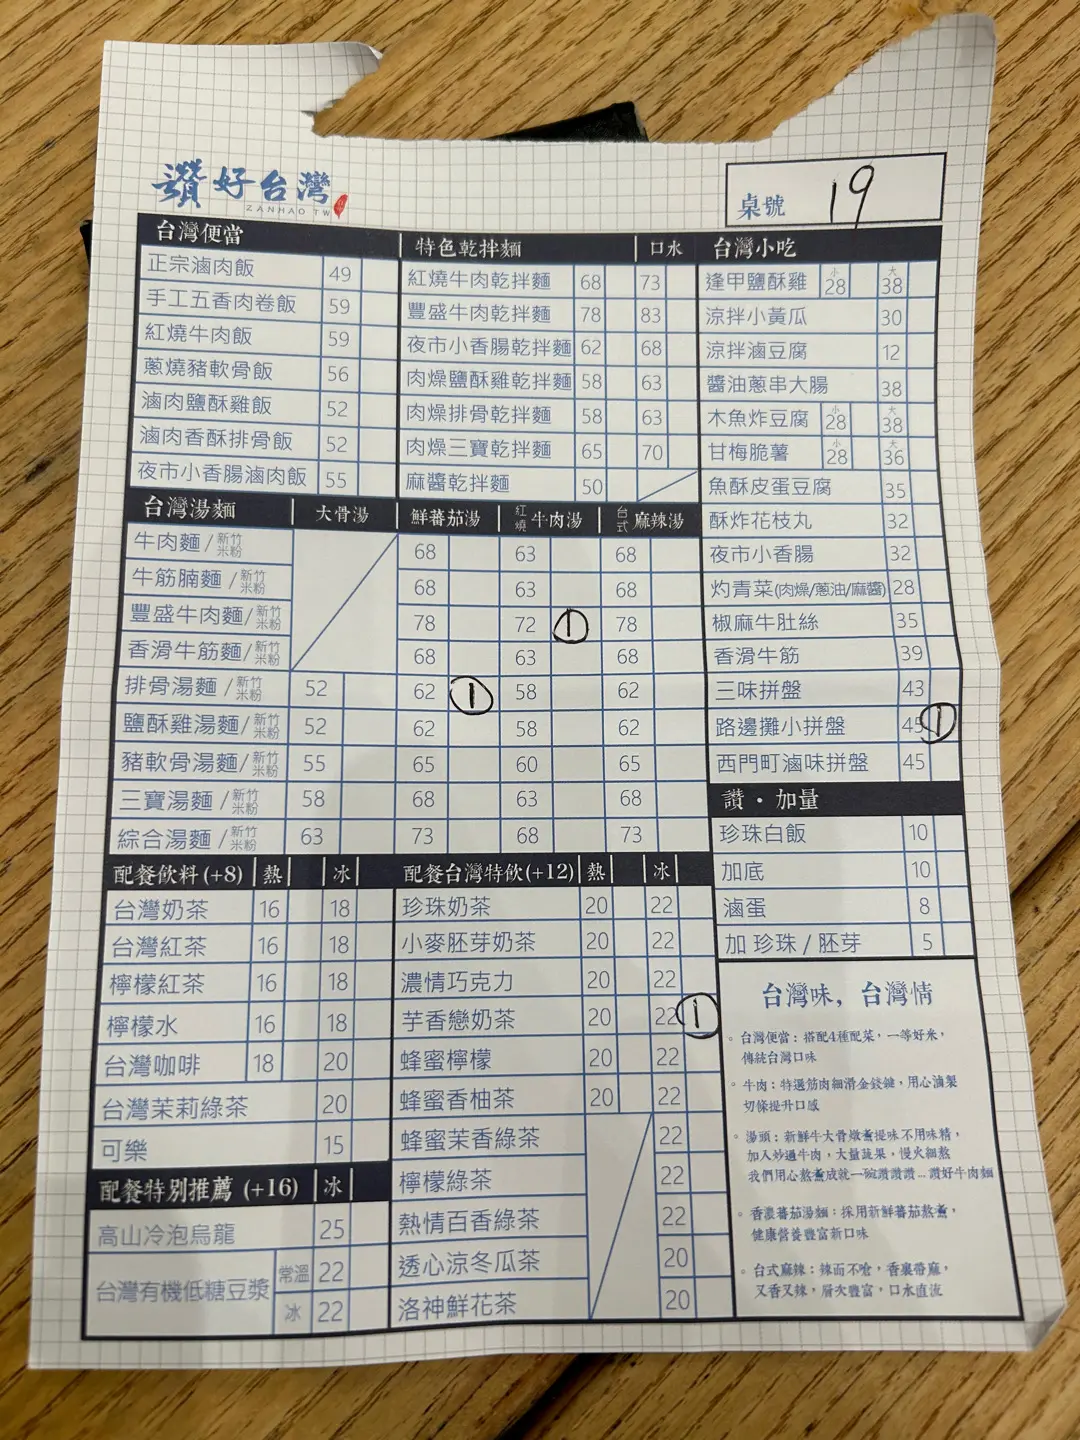 讚好台灣
ZANHAO TW
桌號 19
台灣便當
正宗滷肉飯 49
手工五香肉卷飯 59
紅燒牛肉飯 59
蔥燒豬軟骨飯 56
滷肉鹽酥雞飯 52
滷肉香酥排骨飯 52
夜市小香腸滷肉飯 55
特色乾拌麵 口水
紅燒牛肉乾拌麵 68 73
豐盛牛肉乾拌麵 78 83
夜市小香腸乾拌麵 62 68
肉燥鹽酥雞乾拌麵 58 63
肉燥排骨乾拌麵 58 63
肉燥三寶乾拌麵 65 70
麻醬乾拌麵 50
台灣小吃
逢甲鹽酥雞 小 28 大 38
涼拌小黃瓜 30
涼拌滷豆腐 12
醬油蔥串大腸 38
木魚炸豆腐 小 28 大 38
甘梅脆薯 小 28 大 36
魚酥皮蛋豆腐 35
酥炸花枝丸 32
夜市小香腸 32
灼青菜(肉燥/蔥油/麻醬) 28
椒麻牛肚絲 35
香滑牛筋 39
三味拼盤 43
路邊攤小拼盤 45 1
西門町滷味拼盤 45
台灣湯麵 大骨湯 鮮蕃茄湯 紅燒牛肉湯 台式麻辣湯
牛肉麵/新竹米粉 68 63 68
牛筋腩麵/新竹米粉 68 63 68
豐盛牛肉麵/新竹米粉 78 72 1 78
香滑牛筋麵/新竹米粉 68 63 68
排骨湯麵/新竹米粉 52 62 1 58 62
鹽酥雞湯麵/新竹米粉 52 62 58 62
豬軟骨湯麵/新竹米粉 55 65 60 65
三寶湯麵/新竹米粉 58 68 63 68
綜合湯麵/新竹米粉 63 73 68 73
讚・加量
珍珠白飯 10
加底 10
滷蛋 8
加 珍珠 / 胚芽 5
配餐飲料(+8) 熱 冰
台灣奶茶 16 18
台灣紅茶 16 18
檸檬紅茶 16 18
檸檬水 16 18
台灣咖啡 18 20
台灣茉莉綠茶 20
可樂 15
配餐特別推薦 (+16) 冰
高山冷泡烏龍 25
台灣有機低糖豆漿 常溫 22
冰 22
配餐台灣特飲(+12) 熱 冰
珍珠奶茶 20 22
小麥胚芽奶茶 20 22
濃情巧克力 20 22
芋香戀奶茶 20 22 1
蜂蜜檸檬 20 22
蜂蜜香柚茶 20 22
蜂蜜茉香綠茶 22
檸檬綠茶 22
熱情百香綠茶 22
透心涼冬瓜茶 20
洛神鮮花茶 20
台灣味，台灣情
。台灣便當：搭配4種配菜，一等好米，
傳統台灣口味
。牛肉：特選筋肉細滑金錢腱，用心滷製
切條提升口感
。湯頭：新鮮牛大骨燉煮提味不用味精，
加入炒過牛肉，大量蔬果，慢火細熬
我們用心熬煮成就一碗讚讚讚...讚好牛肉麵
。香濃蕃茄湯麵：採用新鮮蕃茄熬煮，
健康營養豐富新口味
。台式麻辣：辣而不嗆，香裏帶麻，
又香又辣，層次豐富，口水直流